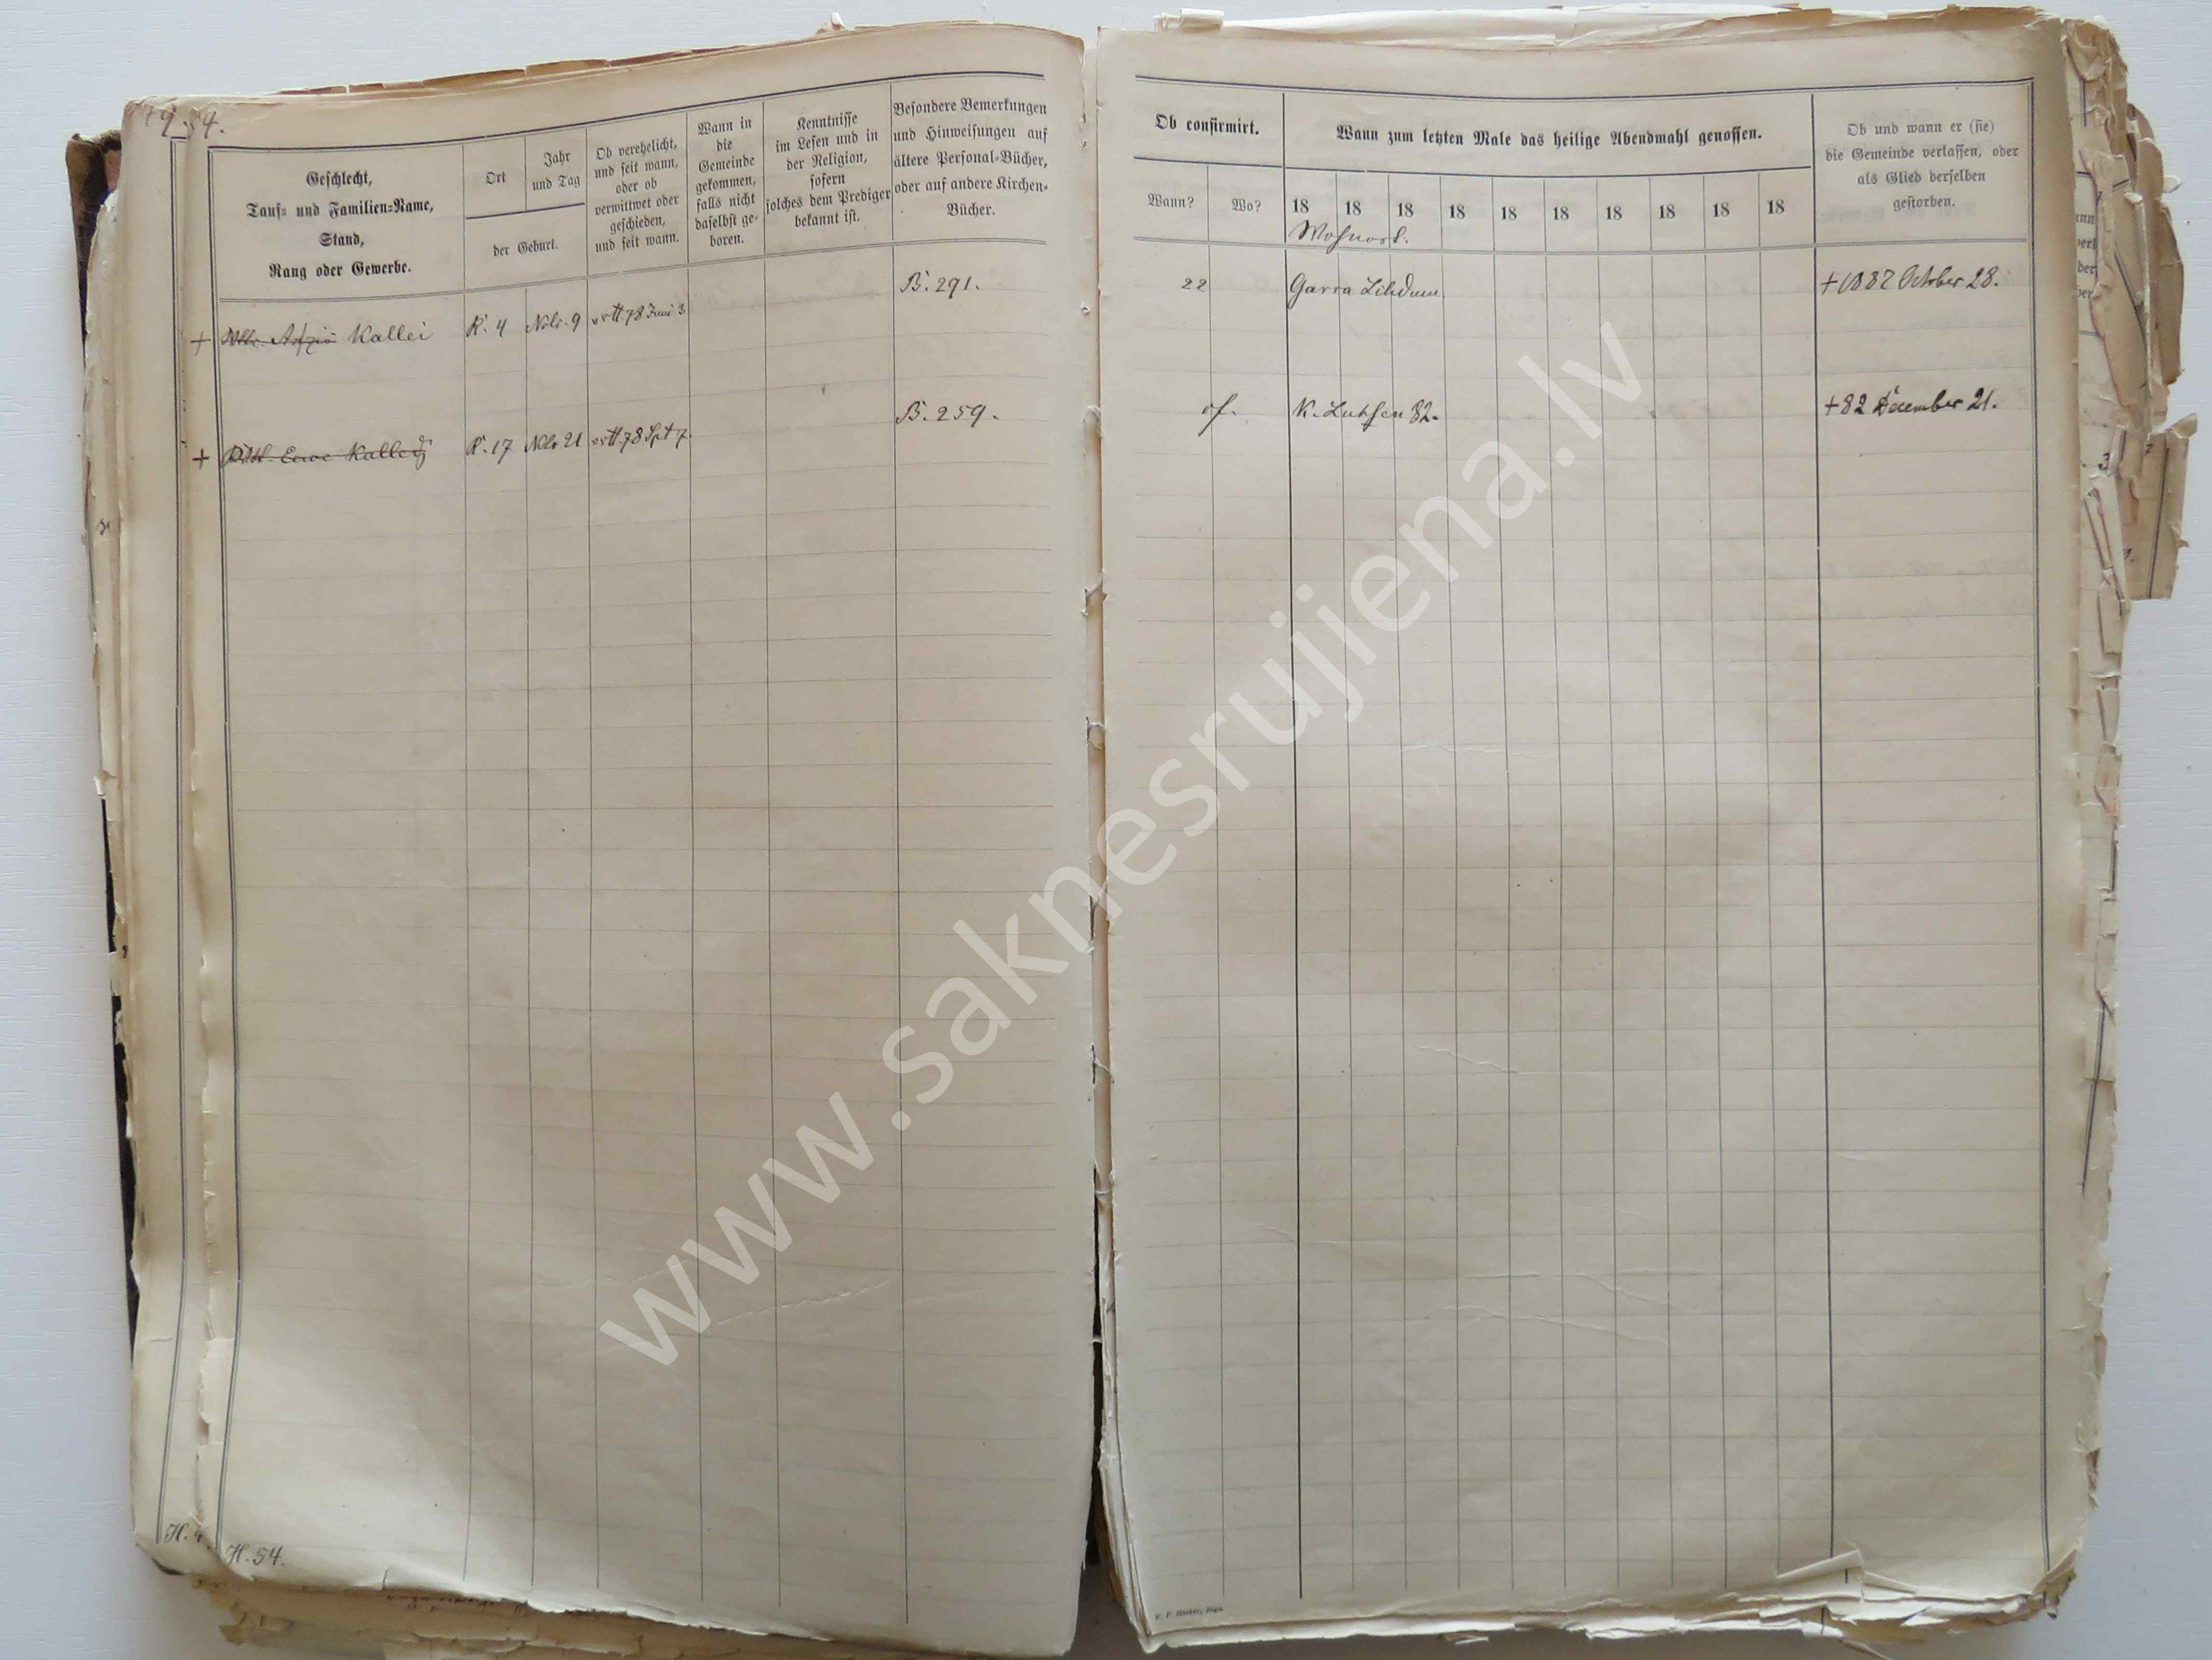 54.
Geschlecht,
Tauf- und Familien-Name,
Stand,
Rang oder Gewerbe.
Ort
Jahr
und Tag
der Geburt.
Ob verehelicht,
und seit wann,
oder ob
verwittwet oder
geschieden,
und seit wann.
Wann in
die
Gemeinde
gekommen,
falls nicht
daselbst ge-
boren.
Kenntnisse
im Lesen und in
der Religion,
sofern
solches dem Prediger
bekannt ist.
Besondere Bemerkungen
und Hinweisungen auf
ältere Personal-Bücher,
oder auf andere Kirchen-
Bücher.
Ob confirmirt.
Wann?
Wo?
Wann zum letzten Male das heilige Abendmahl genossen.
18 18 18 18 18 18 18 18 18 18
Wohnort.
Ob und wann er (sie)
die Gemeinde verlassen, oder
als Glied derselben
gestorben.
+ Kallei R. 4 9 78 Juni 3 B. 291. 22 Garra Lihdum + 1882 October 28.
+ Eewe Kalley R. 17 21 78 Spt 7. B. 259. K. 82. + 82 December 21.
H. 54.
www.saknesrujiena.lv